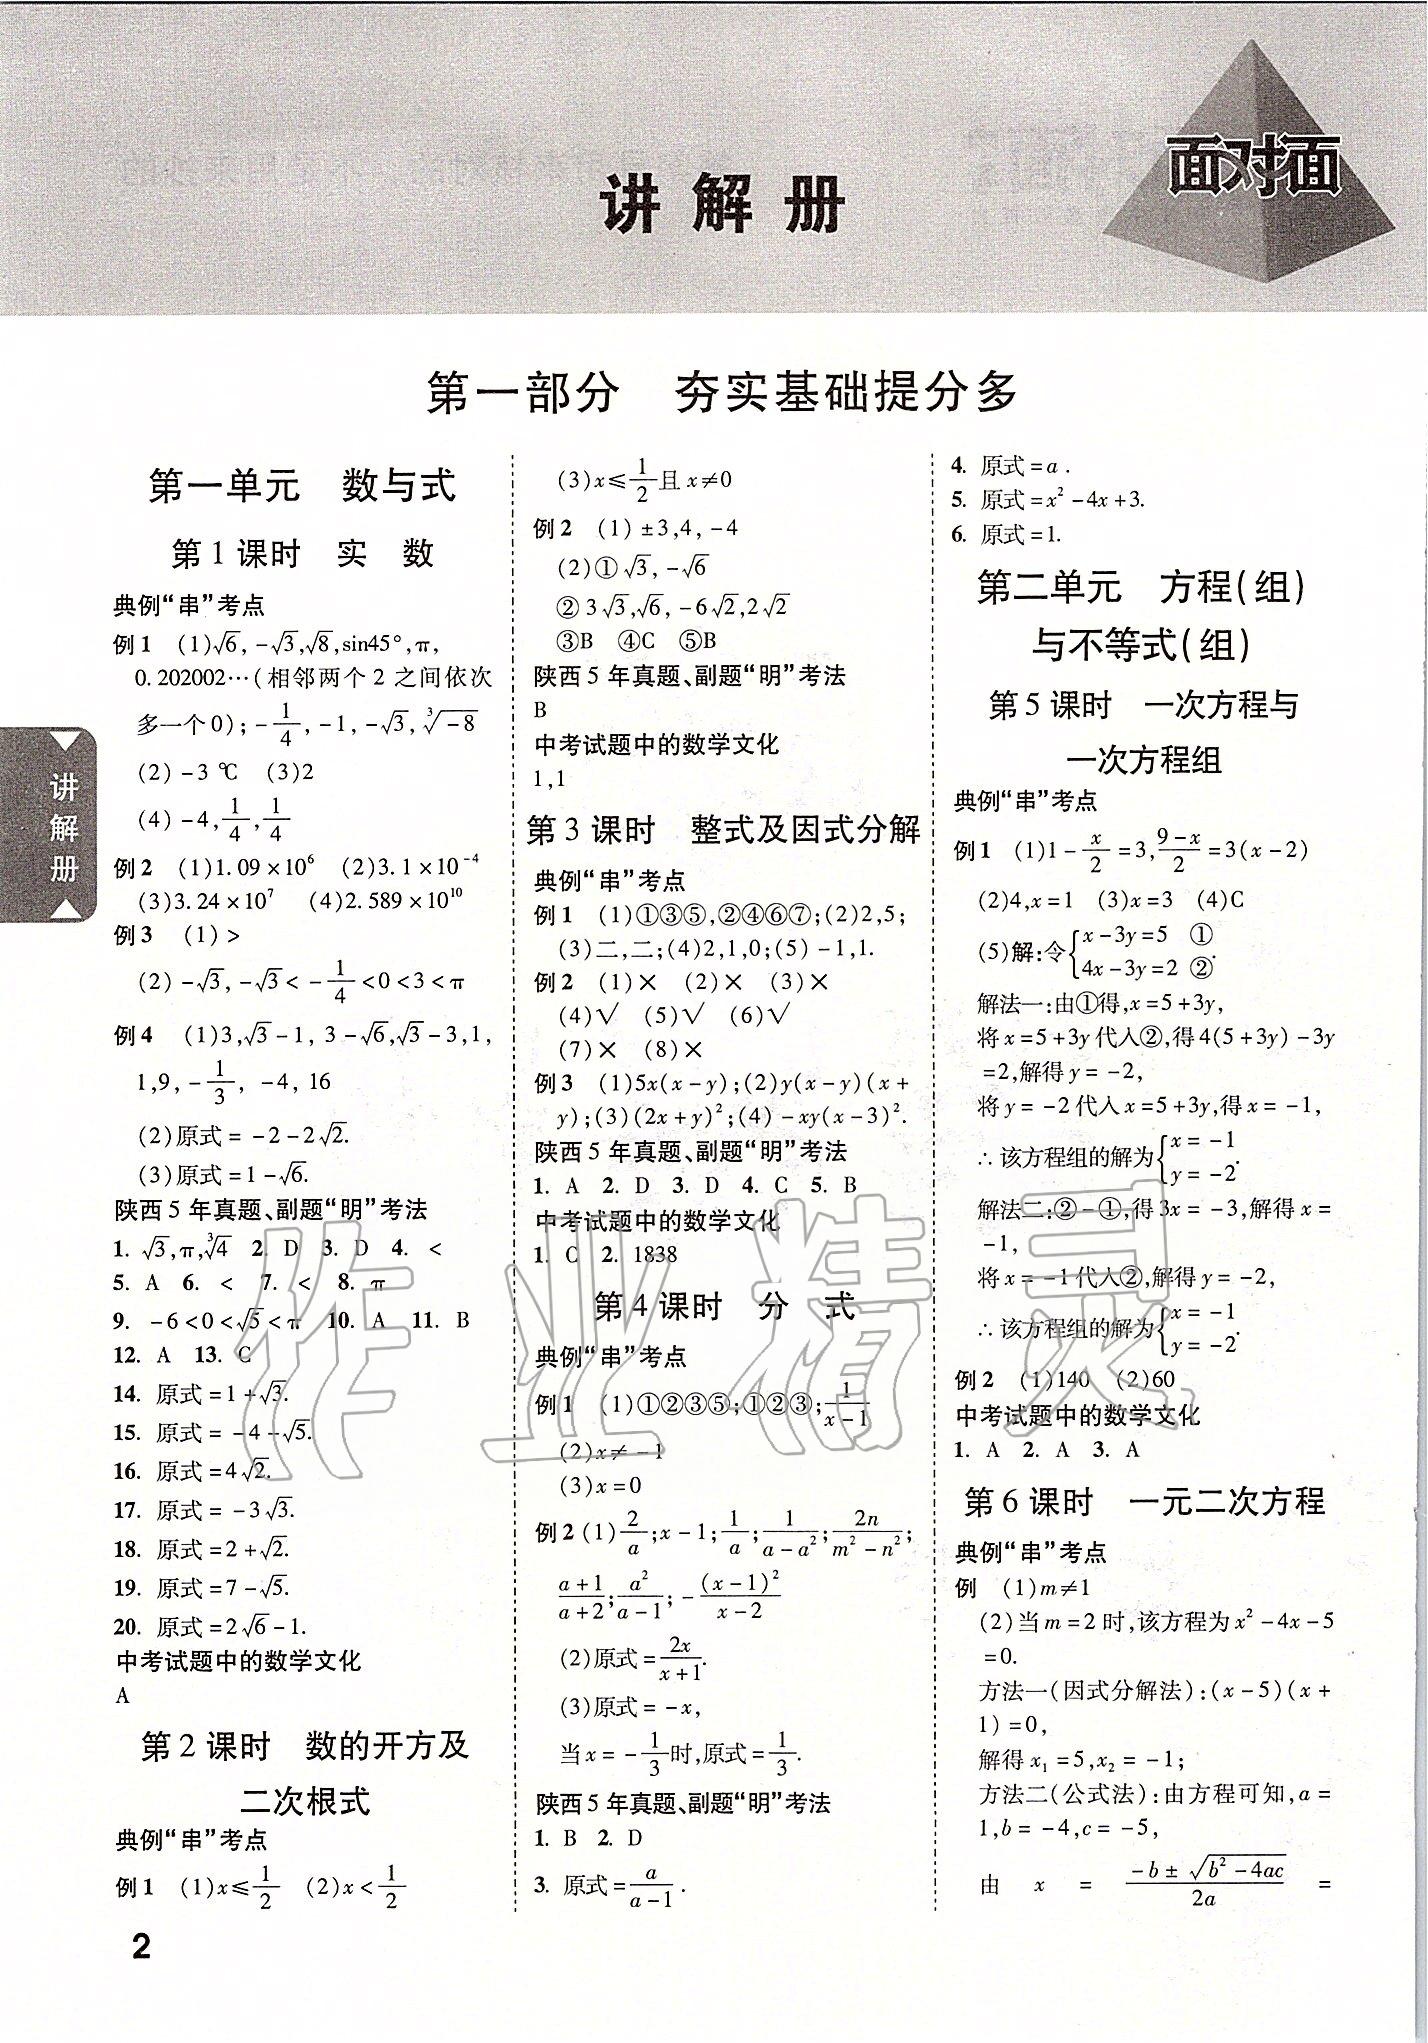 面对面
讲解册
第一部分 夯实基础提分多
讲解册
第一单元 数与式
第1课时 实 数
典例“串”考点
例1 (1)√6, -√3,√8,sin45°,π,
0.202002…(相邻两个2之间依次
多一个0); -1/4, -1, -√3, ∛-8
(2) -3 ℃ (3)2
(4) -4, 1/4, 1/4
例2 (1)1.09×10⁶ (2)3.1×10⁻⁴
(3)3.24×10⁷ (4)2.589×10¹⁰
例3 (1) >
(2) -√3, -√3< -1/4<0<3<π
例4 (1)3,√3-1, 3-√6,√3-3,1,
1,9, -1/3, -4, 16
(2)原式= -2-2√2.
(3)原式=1-√6.
陕西5年真题、副题“明”考法
1. √3,π,∛4 2. D 3. D 4. <
5. A 6. < 7. < 8. π
9. -6<0<√5<π 10. A 11. B
12. A 13. C
14. 原式=1+√3.
15. 原式= -4-√5.
16. 原式=4√2.
17. 原式= -3√3.
18. 原式=2+√2.
19. 原式=7-√5.
20. 原式=2√6-1.
中考试题中的数学文化
A
第2课时 数的开方及
二次根式
典例“串”考点
例1 (1)x≤1/2 (2)x<1/2
(3)x≤1/2且x≠0
例2 (1) ±3,4, -4
(2)①√3, -√6
②3√3,√6, -6√2,2√2
③B ④C ⑤B
陕西5年真题、副题“明”考法
B
中考试题中的数学文化
1,1
第3课时 整式及因式分解
典例“串”考点
例1 (1)①③⑤,②④⑥⑦;(2)2,5;
(3)二,二;(4)2,1,0;(5) -1,1.
例2 (1)× (2)× (3)×
(4)√ (5)√ (6)√
(7)× (8)×
例3 (1)5x(x-y);(2)y(x-y)(x+
y);(3)(2x+y)²;(4) -xy(x-3)².
陕西5年真题、副题“明”考法
1. A 2. D 3. D 4. C 5. B
中考试题中的数学文化
1. C 2. 1838
第4课时 分 式
典例“串”考点
例1 (1)①②③⑤;①②③;1/(x-1)
(2)x≠-1
(3)x=0
例2 (1)2/a;x-1;1/a;1/(a-a²);2n/(m²-n²);
(a+1)/(a+2);a²/(a-1); -(x-1)²/(x-2)
(2)原式=2x/(x+1).
(3)原式= -x,
当x= -1/3时,原式=1/3.
陕西5年真题、副题“明”考法
1. B 2. D
3. 原式=a/(a-1).
4. 原式=a.
5. 原式=x²-4x+3.
6. 原式=1.
第二单元 方程(组)
与不等式(组)
第5课时 一次方程与
一次方程组
典例“串”考点
例1 (1)1-x/2=3,(9-x)/2=3(x-2)
(2)4,x=1 (3)x=3 (4)C
(5)解:令{x-3y=5 ①
4x-3y=2 ②.
解法一:由①得,x=5+3y,
将x=5+3y代入②,得4(5+3y)-3y
=2,解得y= -2,
将y= -2代入x=5+3y,得x= -1,
∴该方程组的解为{x= -1
y= -2.
解法二:②-①,得3x= -3,解得x=
-1,
将x= -1代入②,解得y= -2,
∴该方程组的解为{x= -1
y= -2.
例2 (1)140 (2)60
中考试题中的数学文化
1. A 2. A 3. A
第6课时 一元二次方程
典例“串”考点
例 (1)m≠1
(2)当m=2时,该方程为x²-4x-5
=0.
方法一(因式分解法):(x-5)(x+
1)=0,
解得x₁=5,x₂= -1;
方法二(公式法):由方程可知,a=
1,b= -4,c= -5,
由 x = (-b±√(b²-4ac))/2a =
2
作业精灵